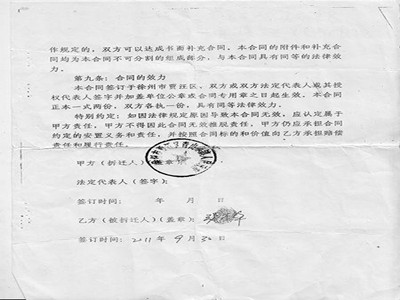 作规定的，双方可以达成书面补充合同。本合同的附件和补充合
同均为本合同不可分割的组成部分，与本合同具有同等的法律效
力。
第九条：合同的效力
本合同签订于徐州市贾汪区，双方或双方法定代表人或其授
权代表人签字并加盖单位公章或合同专用章之日起生效。本合同
正本一式两份，双方各执一份，具有同等法律效力。
特别约定：如因法律规定原因导致本合同无效，应认定属于
甲方责任，甲方不得因此合同无效推脱责任，甲方仍应承担合同
约定的安置义务和责任，并按照合同标的和价值向乙方承担赔偿
责任和履行责任。
甲方（拆迁人）
法定代表人（签字）：
签订时间： 年 月 日
乙方（被拆迁人）（盖章）：
签订时间：2011年9月30日